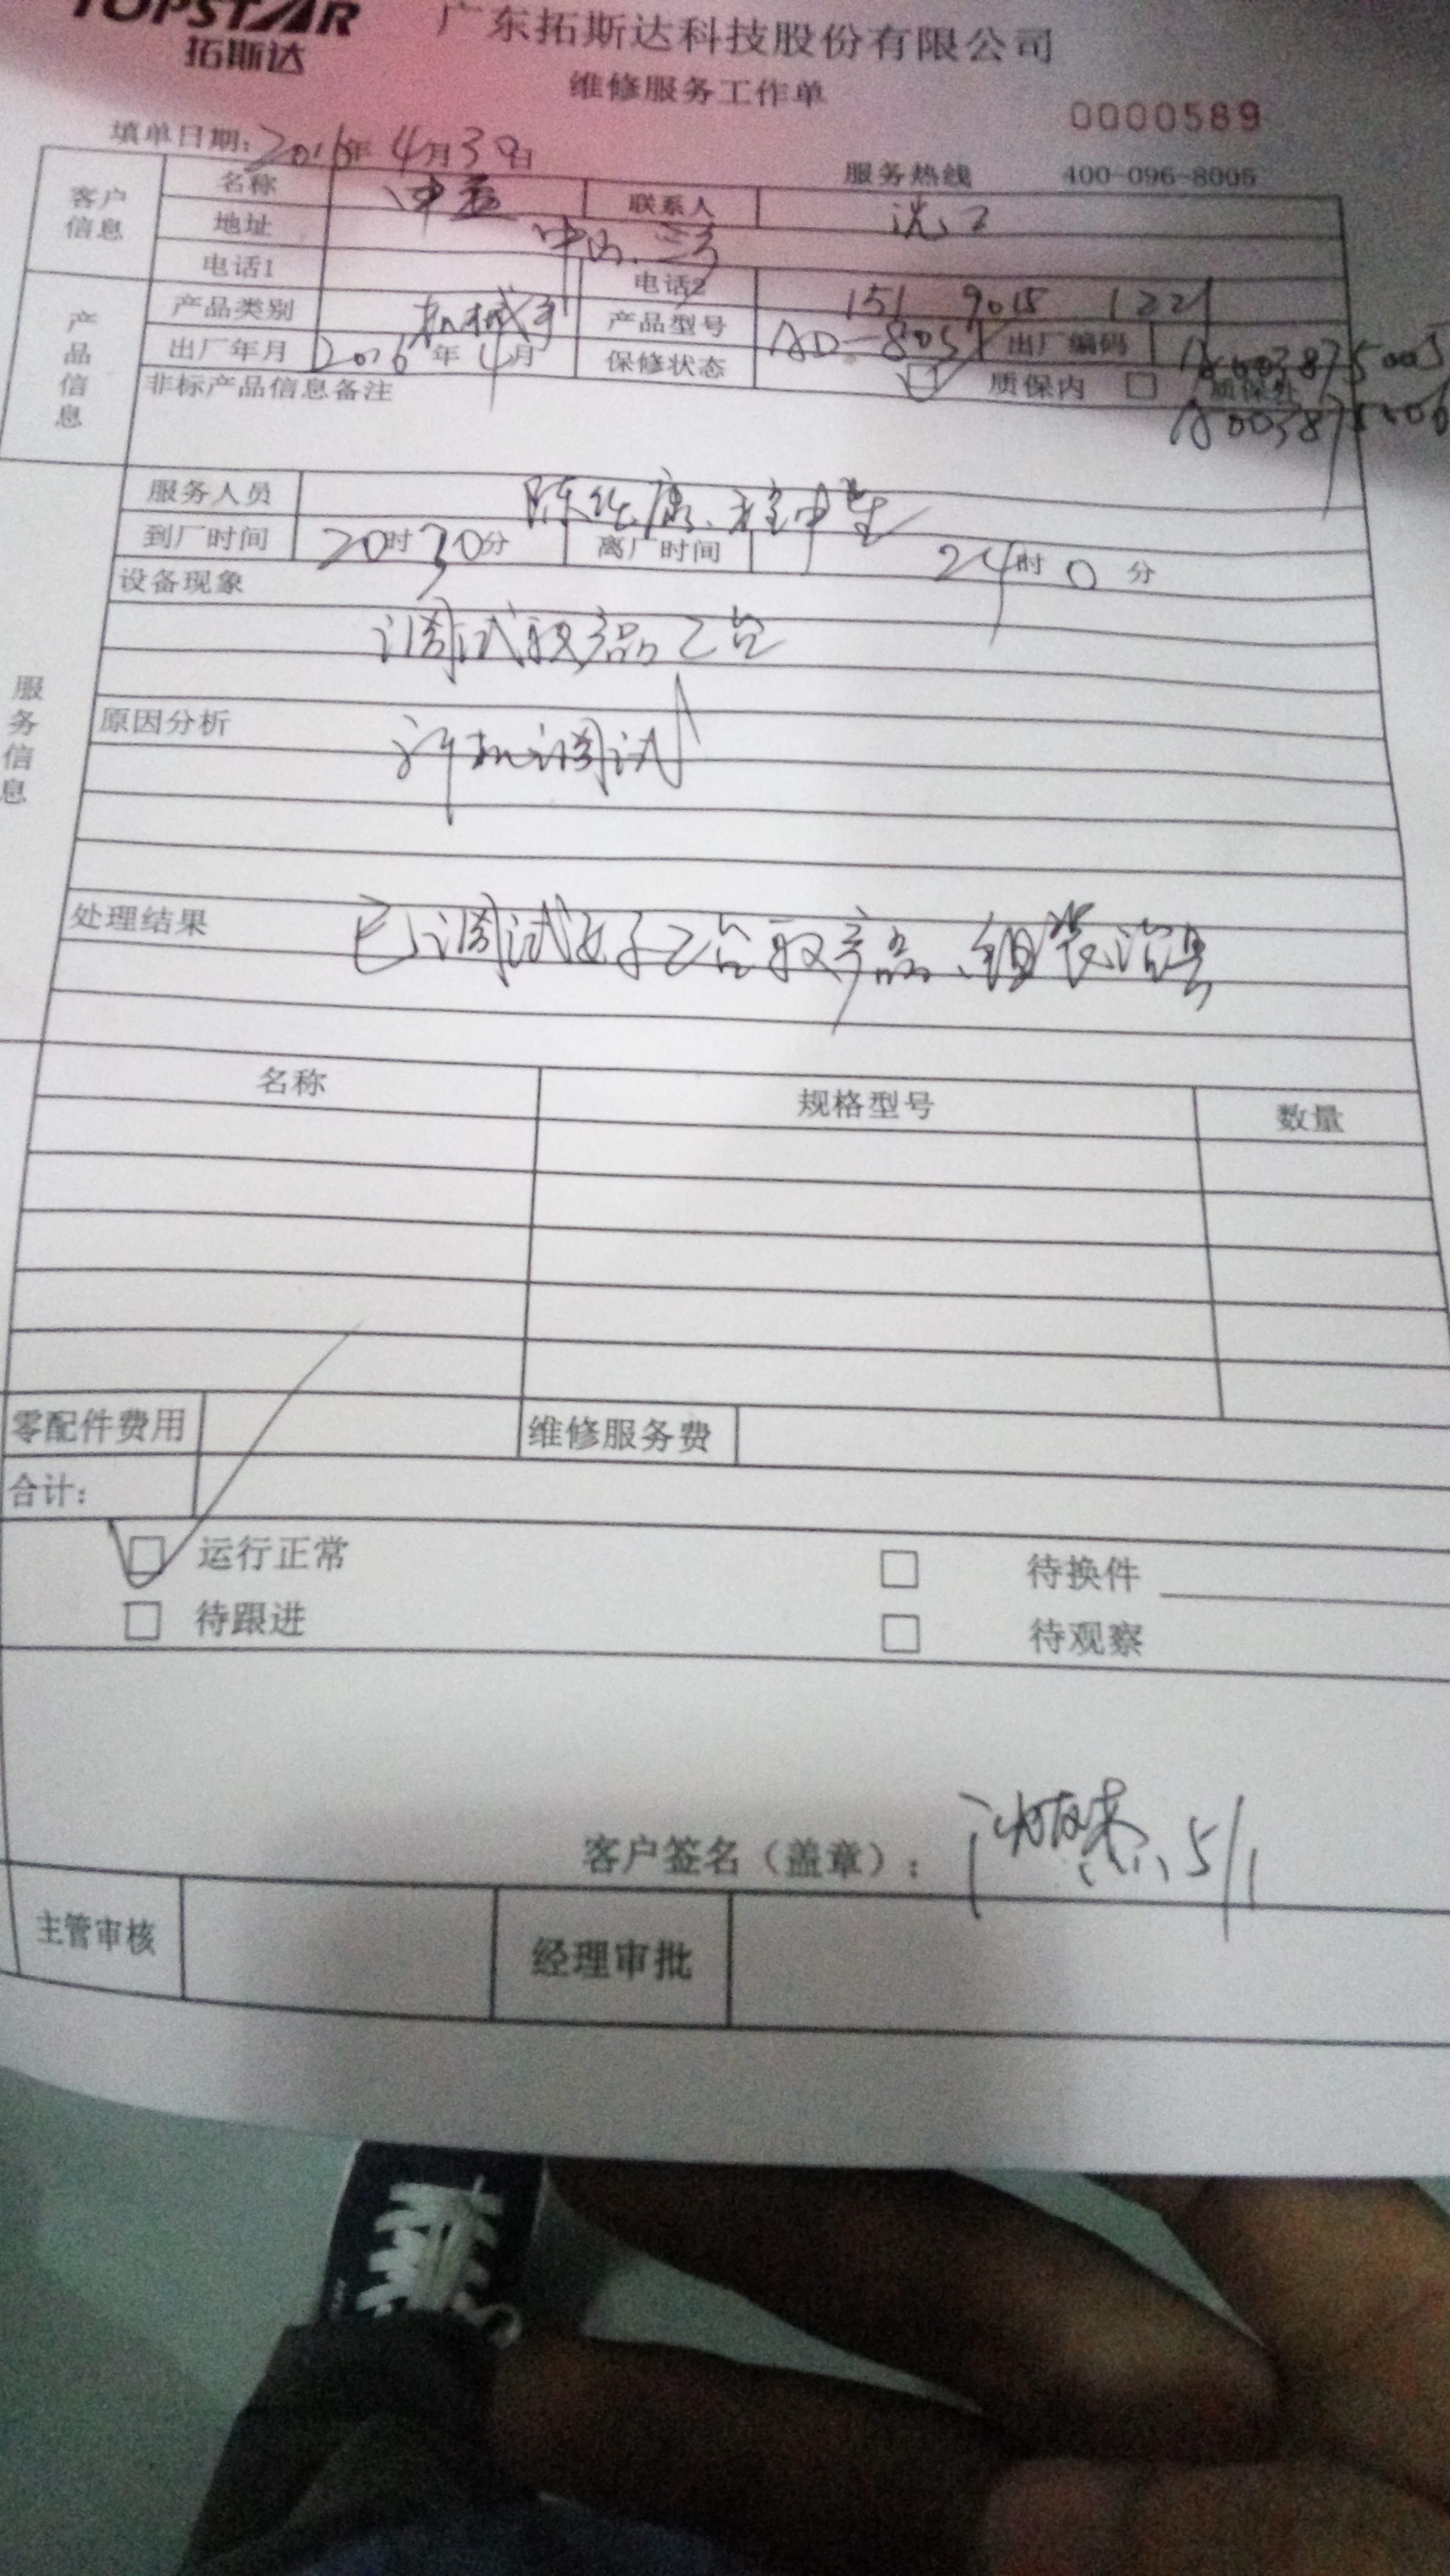 TOPSTAR
拓斯达
广东拓斯达科技股份有限公司
维修服务工作单
0000589
填单日期: 2016年 4月30日
服务热线 400-096-8005
客户信息
名称 联系人
地址 中山
电话1 电话2 151 9018 1221
产品信息
产品类别 机械手 产品型号 出厂编码
出厂年月 2016年 4月 保修状态 质保内 质保外
非标产品信息备注
服务信息
服务人员
到厂时间 20时30分 离厂时间 24时0分
设备现象
调试取产品2台
原因分析
新机调试
处理结果 已调试好2台取产品、组装治具
名称 规格型号 数量
零配件费用 维修服务费
合计:
运行正常 待换件
待跟进 待观察
客户签名（盖章）: 5/1
主管审核 经理审批